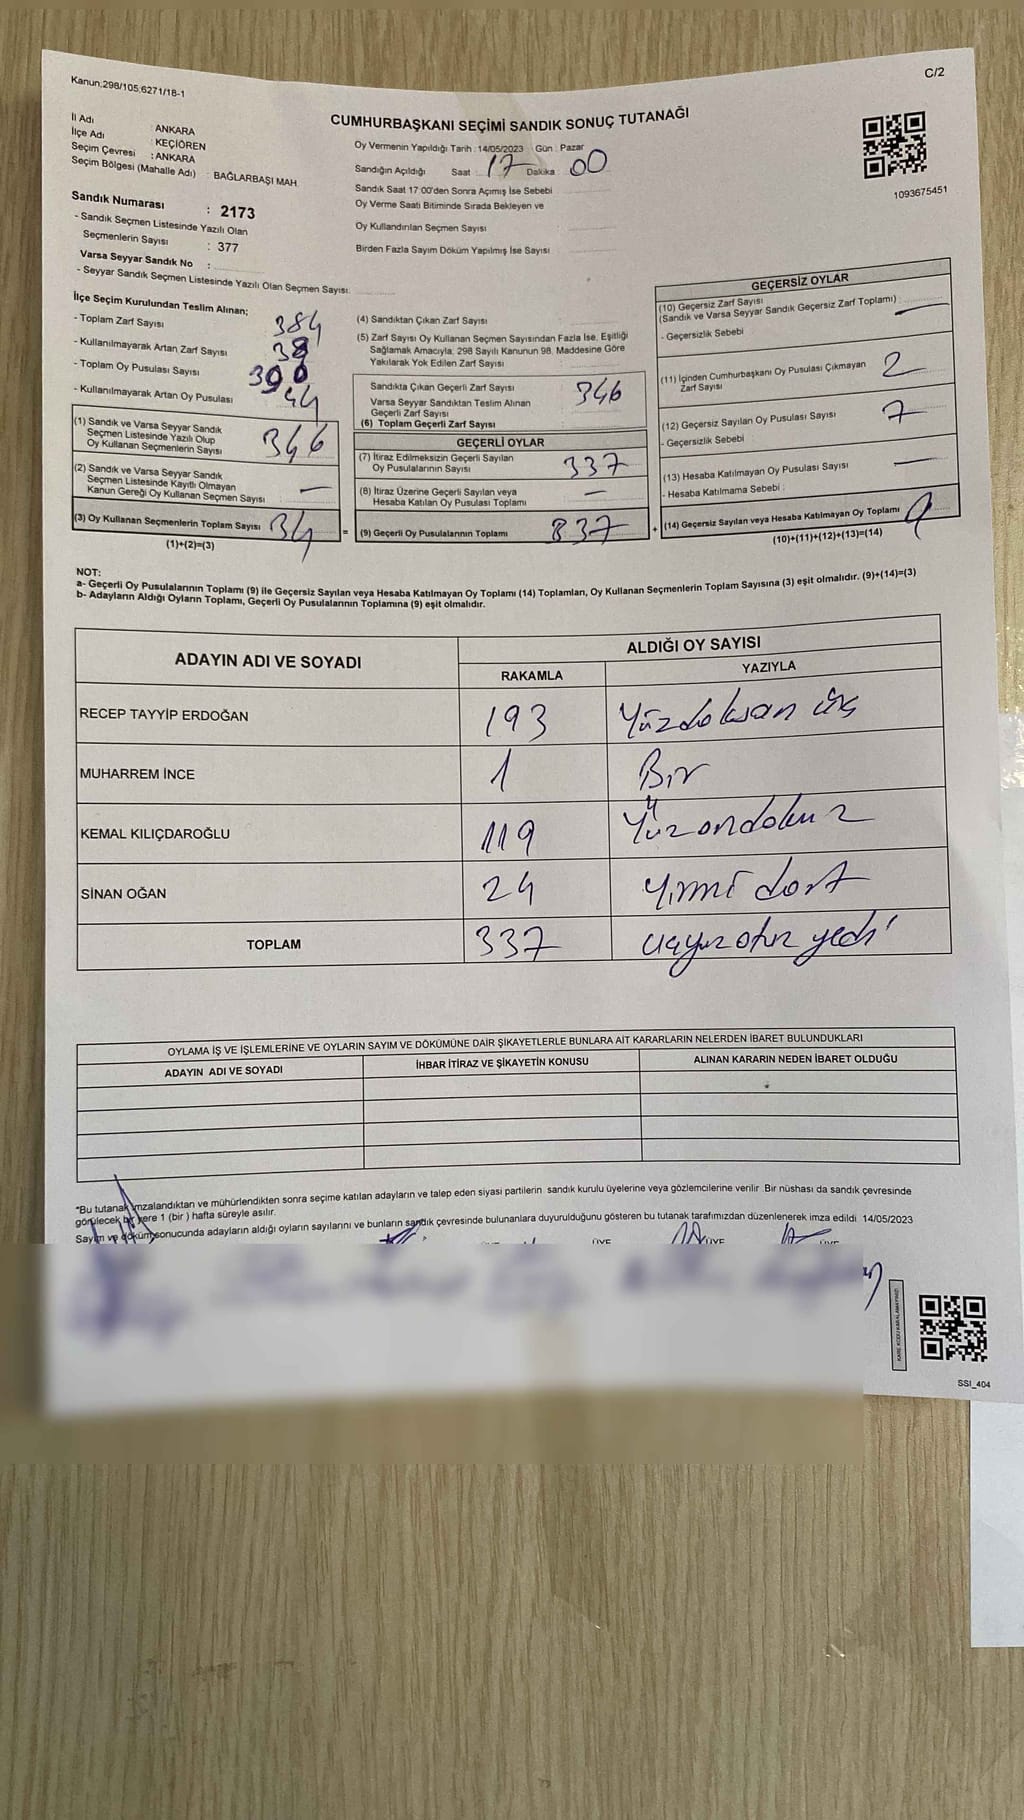 Kanun;298/105;6271/18-1
C/2
CUMHURBAŞKANI SEÇİMİ SANDIK SONUÇ TUTANAĞI
İl Adı : ANKARA
İlçe Adı : KEÇİÖREN
Seçim Çevresi : ANKARA
Seçim Bölgesi (Mahalle Adı) : BAĞLARBAŞI MAH.
Sandık Numarası : 2173
- Sandık Seçmen Listesinde Yazılı Olan
Seçmenlerin Sayısı : 377
Varsa Seyyar Sandık No :
- Seyyar Sandık Seçmen Listesinde Yazılı Olan Seçmen Sayısı:
Oy Vermenin Yapıldığı Tarih : 14/05/2023 Gün : Pazar
Sandığın Açıldığı Saat : 17 Dakika : 00
Sandık Saat 17:00'den Sonra Açımış İse Sebebi
Oy Verme Saati Bitiminde Sırada Bekleyen ve
Oy Kullandırılan Seçmen Sayısı :
Birden Fazla Sayım Döküm Yapılmış İse Sayısı :
1093675451
İlçe Seçim Kurulundan Teslim Alınan;
- Toplam Zarf Sayısı 384
- Kullanılmayarak Artan Zarf Sayısı 38
- Toplam Oy Pusulası Sayısı 390
- Kullanılmayarak Artan Oy Pusulası 44
(1) Sandık ve Varsa Seyyar Sandık
Seçmen Listesinde Yazılı Olup
Oy Kullanan Seçmenlerin Sayısı 346
(2) Sandık ve Varsa Seyyar Sandık
Seçmen Listesinde Kayıtlı Olmayan
Kanun Gereği Oy Kullanan Seçmen Sayısı : —
(3) Oy Kullanan Seçmenlerin Toplam Sayısı 34 =
(1)+(2)=(3)
(4) Sandıktan Çıkan Zarf Sayısı :
(5) Zarf Sayısı Oy Kullanan Seçmen Sayısından Fazla İse, Eşitliği
Sağlamak Amacıyla, 298 Sayılı Kanunun 98. Maddesine Göre
Yakılarak Yok Edilen Zarf Sayısı :
Sandıkta Çıkan Geçerli Zarf Sayısı 346
Varsa Seyyar Sandıktan Teslim Alınan
Geçerli Zarf Sayısı
(6) Toplam Geçerli Zarf Sayısı
GEÇERLİ OYLAR
(7) İtiraz Edilmeksizin Geçerli Sayılan
Oy Pusulalarının Sayısı 337
(8) İtiraz Üzerine Geçerli Sayılan veya
Hesaba Katılan Oy Pusulası Toplamı —
(9) Geçerli Oy Pusulalarının Toplamı 337 +
GEÇERSİZ OYLAR
(10) Geçersiz Zarf Sayısı
(Sandık ve Varsa Seyyar Sandık Geçersiz Zarf Toplamı) : —
- Geçersizlik Sebebi
(11) İçinden Cumhurbaşkanı Oy Pusulası Çıkmayan
Zarf Sayısı 2
(12) Geçersiz Sayılan Oy Pusulası Sayısı 7
- Geçersizlik Sebebi
(13) Hesaba Katılmayan Oy Pusulası Sayısı —
- Hesaba Katılmama Sebebi :
(14) Geçersiz Sayılan veya Hesaba Katılmayan Oy Toplamı 9
(10)+(11)+(12)+(13)=(14)
NOT:
a- Geçerli Oy Pusulalarının Toplamı (9) ile Geçersiz Sayılan veya Hesaba Katılmayan Oy Toplamı (14) Toplamları, Oy Kullanan Seçmenlerin Toplam Sayısına (3) eşit olmalıdır. (9)+(14)=(3)
b- Adayların Aldığı Oyların Toplamı, Geçerli Oy Pusulalarının Toplamına (9) eşit olmalıdır.
ADAYIN ADI VE SOYADI
ALDIĞI OY SAYISI
RAKAMLA YAZIYLA
RECEP TAYYİP ERDOĞAN 193 Yüzdoksan üç
MUHARREM İNCE 1 Bir
KEMAL KILIÇDAROĞLU 119 Yüzondokuz
SİNAN OĞAN 24 Yirmi dört
TOPLAM 337 üçyüz otuz yedi
OYLAMA İŞ VE İŞLEMLERİNE VE OYLARIN SAYIM VE DÖKÜMÜNE DAİR ŞİKAYETLERLE BUNLARA AİT KARARLARIN NELERDEN İBARET BULUNDUKLARI
ADAYIN ADI VE SOYADI İHBAR İTİRAZ VE ŞİKAYETİN KONUSU ALINAN KARARIN NEDEN İBARET OLDUĞU
*Bu tutanak imzalandıktan ve mühürlendikten sonra seçime katılan adayların ve talep eden siyasi partilerin sandık kurulu üyelerine veya gözlemcilerine verilir. Bir nüshası da sandık çevresinde
görülecek bir yere 1 (bir ) hafta süreyle asılır.
Sayım ve döküm sonucunda adayların aldığı oyların sayılarını ve bunların sandık çevresinde bulunanlara duyurulduğunu gösteren bu tutanak tarafımızdan düzenlenerek imza edildi 14/05/2023
ÜYE ÜYE ÜYE
KARE KODU KARALAMAYINIZ!
SSI_404